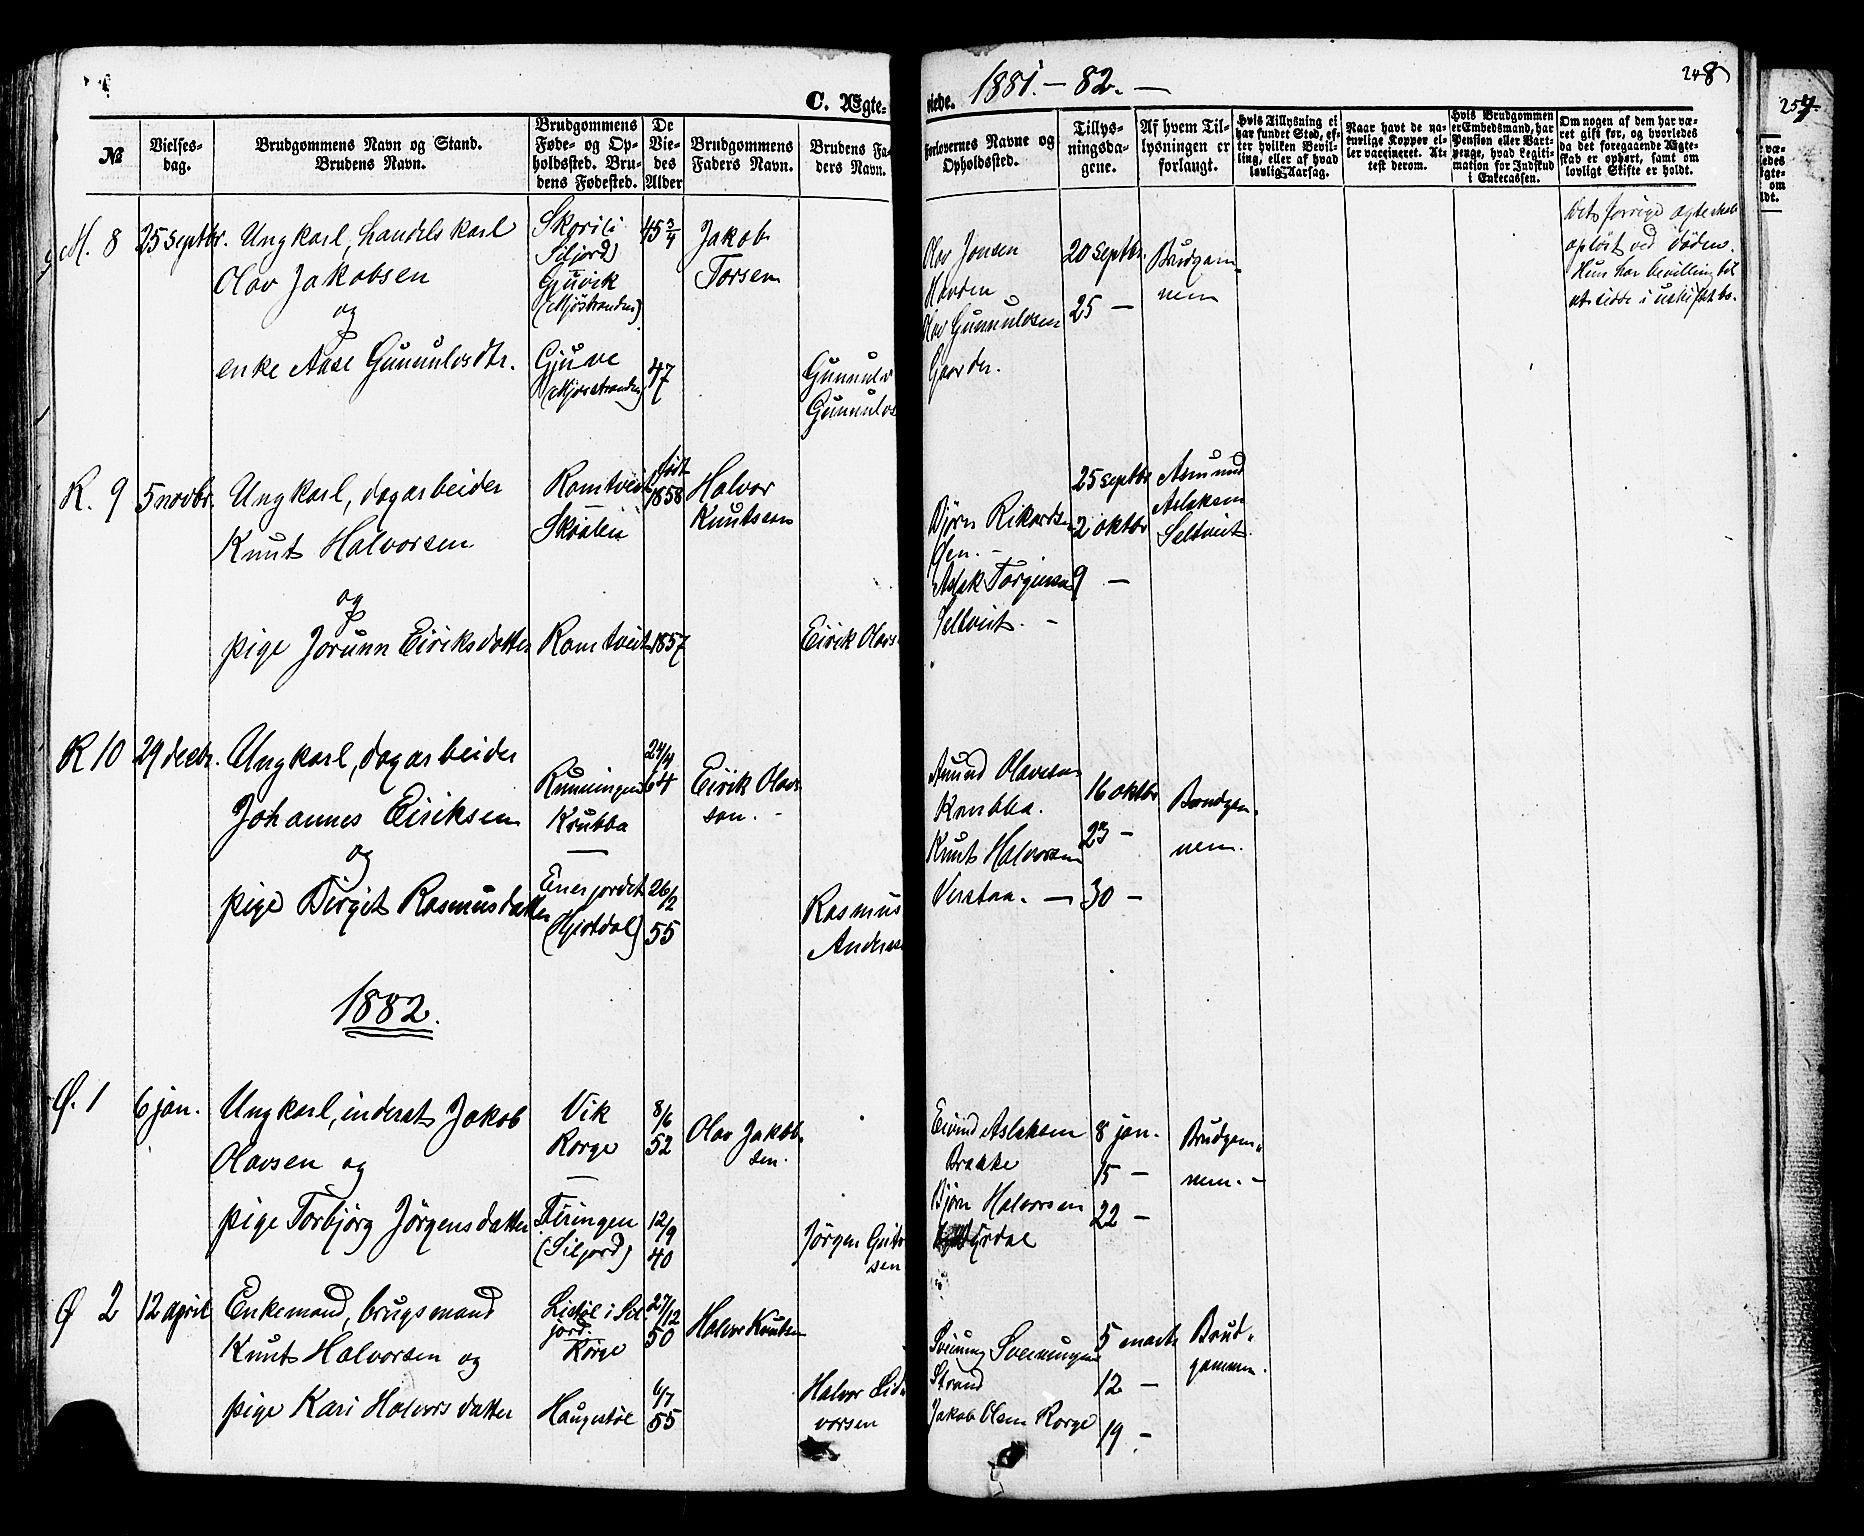 C. Ægte-
viede. 1881. - 82. -
248
257
№
Vielses-
dag.
Brudgommens Navn og Stand.
Brudens Navn.
Brudgommens
Føde- og Op-
holdssted. Bru-
dens Fødested.
De
Vie-
des
Alder
Brudgommens
Faders Navn.
Brudens Fa-
ders Navn.
Forlovernes Navne og
Opholdssted.
Tillys-
ningsda-
gene.
Af hvem Til-
lysningen er
forlangt.
Hvis Tillysning ei
har fundet Sted, ef-
ter hvilken Bevil-
ling, eller af hvad
lovlig Aarsag.
Naar havt de na-
turlige Kopper el-
ler vaccineret. At-
test derom.
Hvis Brudgommen
er Embedsmand, har
Pension eller Vart-
penge, hvad Legiti-
mation for Indskud
i Enkecassen.
Om nogen af dem har væ-
ret gift før, og hvorledes
da det foregaaende Ægte-
skab er ophørt, samt om
lovligt Skifte er holdt.
M. 8
25 septbr.
Ungkarl, handelskarl
Olav Jakobsen
og
enke Aase Gunnulvsdtr.
Skorili
Siljord)
Gjuvik
(Mjøstranden)
Gjuve
(Mjøsstranden)
45 3/4
47
Jakob
Torsen
Gunnulv
Gunnulvs
Olav Jonsen
Hovden
Olav Gunnulvsen
20 septbr.
25 -
Brudgom-
men
Dets forrige ægteskab
opløst ved døden.
Hun har bevilling til
at sidde i uskiftet bo.
R. 9
5 novbr.
Ungkarl, dagarbeider
Knut Halvorsen
og
pige Jorunn Eiriksdatter
Romtveit
Romtveit
født
1858
1857
Halvor
Knutsen
Eirik Olavs
Bjørn Rikardsen
Øen. -
Aslak Torginsen
Seltveit. -
25 septbr
2 oktbr
9 -
Asmund
Aslaksen
Seltveit.
R 10
29 decbr.
Ungkarl, dagarbeider
Johannes Eiriksen
og
pige Birgit Rasmusdatter
Runningen
Krubba
Einesjordet
(Hjertdal)
24/9
64
26/2
55
Eirik Olavs
son. -
Rasmus
Anders
Olavsen
Krubba.
Knut Halvorsen
Verstaa. -
16 oktbr
23 -
30 -
Brudgom-
men.
1882.
Ø. 1
6 jan.
Ungkarl, inderst Jakob
Olavsen og
pige Torbjørg Jørgensdatter
Vik
Rorge
(Siljord)
8/6
52
12/9
40
Olav Jakob-
sen.
Jørgen
sen
Eivind Aslaksen
Brakke
Bjørn Halvorsen
8 jan.
15 -
22 -
Brudgom-
men. -
Ø 2
12 april
Enkemand, brugsmand
Knut Halvorsen og
pige Kari Halvorsdatter
i Sil
jord.
Rorge
Haugestøl
27/12
50
6/7
55
Halvor Knutsen
Halvor
vorsen
Sveinung Sveinungsen
Strand
Jakob Olsen Rorge
5 marts
12 -
19 -
Brud-
gommen.